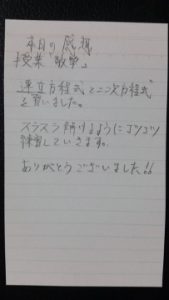 本日の感想
「授業 数学」
連立方程式と二次方程式
を習いました。
スラスラ解けるようにコツコツ
練習していきます。
ありがとうございました!!